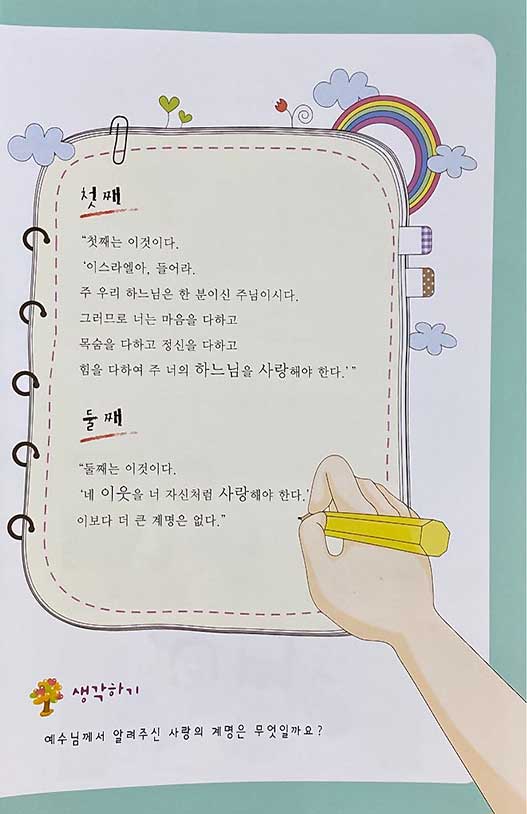 첫째
“첫째는 이것이다.
‘이스라엘아, 들어라.
주 우리 하느님은 한 분이신 주님이시다.
그러므로 너는 마음을 다하고
목숨을 다하고 정신을 다하고
힘을 다하여 주 너의 하느님을 사랑해야 한다.’”
둘째
“둘째는 이것이다.
‘네 이웃을 너 자신처럼 사랑해야 한다.’
이보다 더 큰 계명은 없다.”
생각하기
예수님께서 알려주신 사랑의 계명은 무엇일까요?